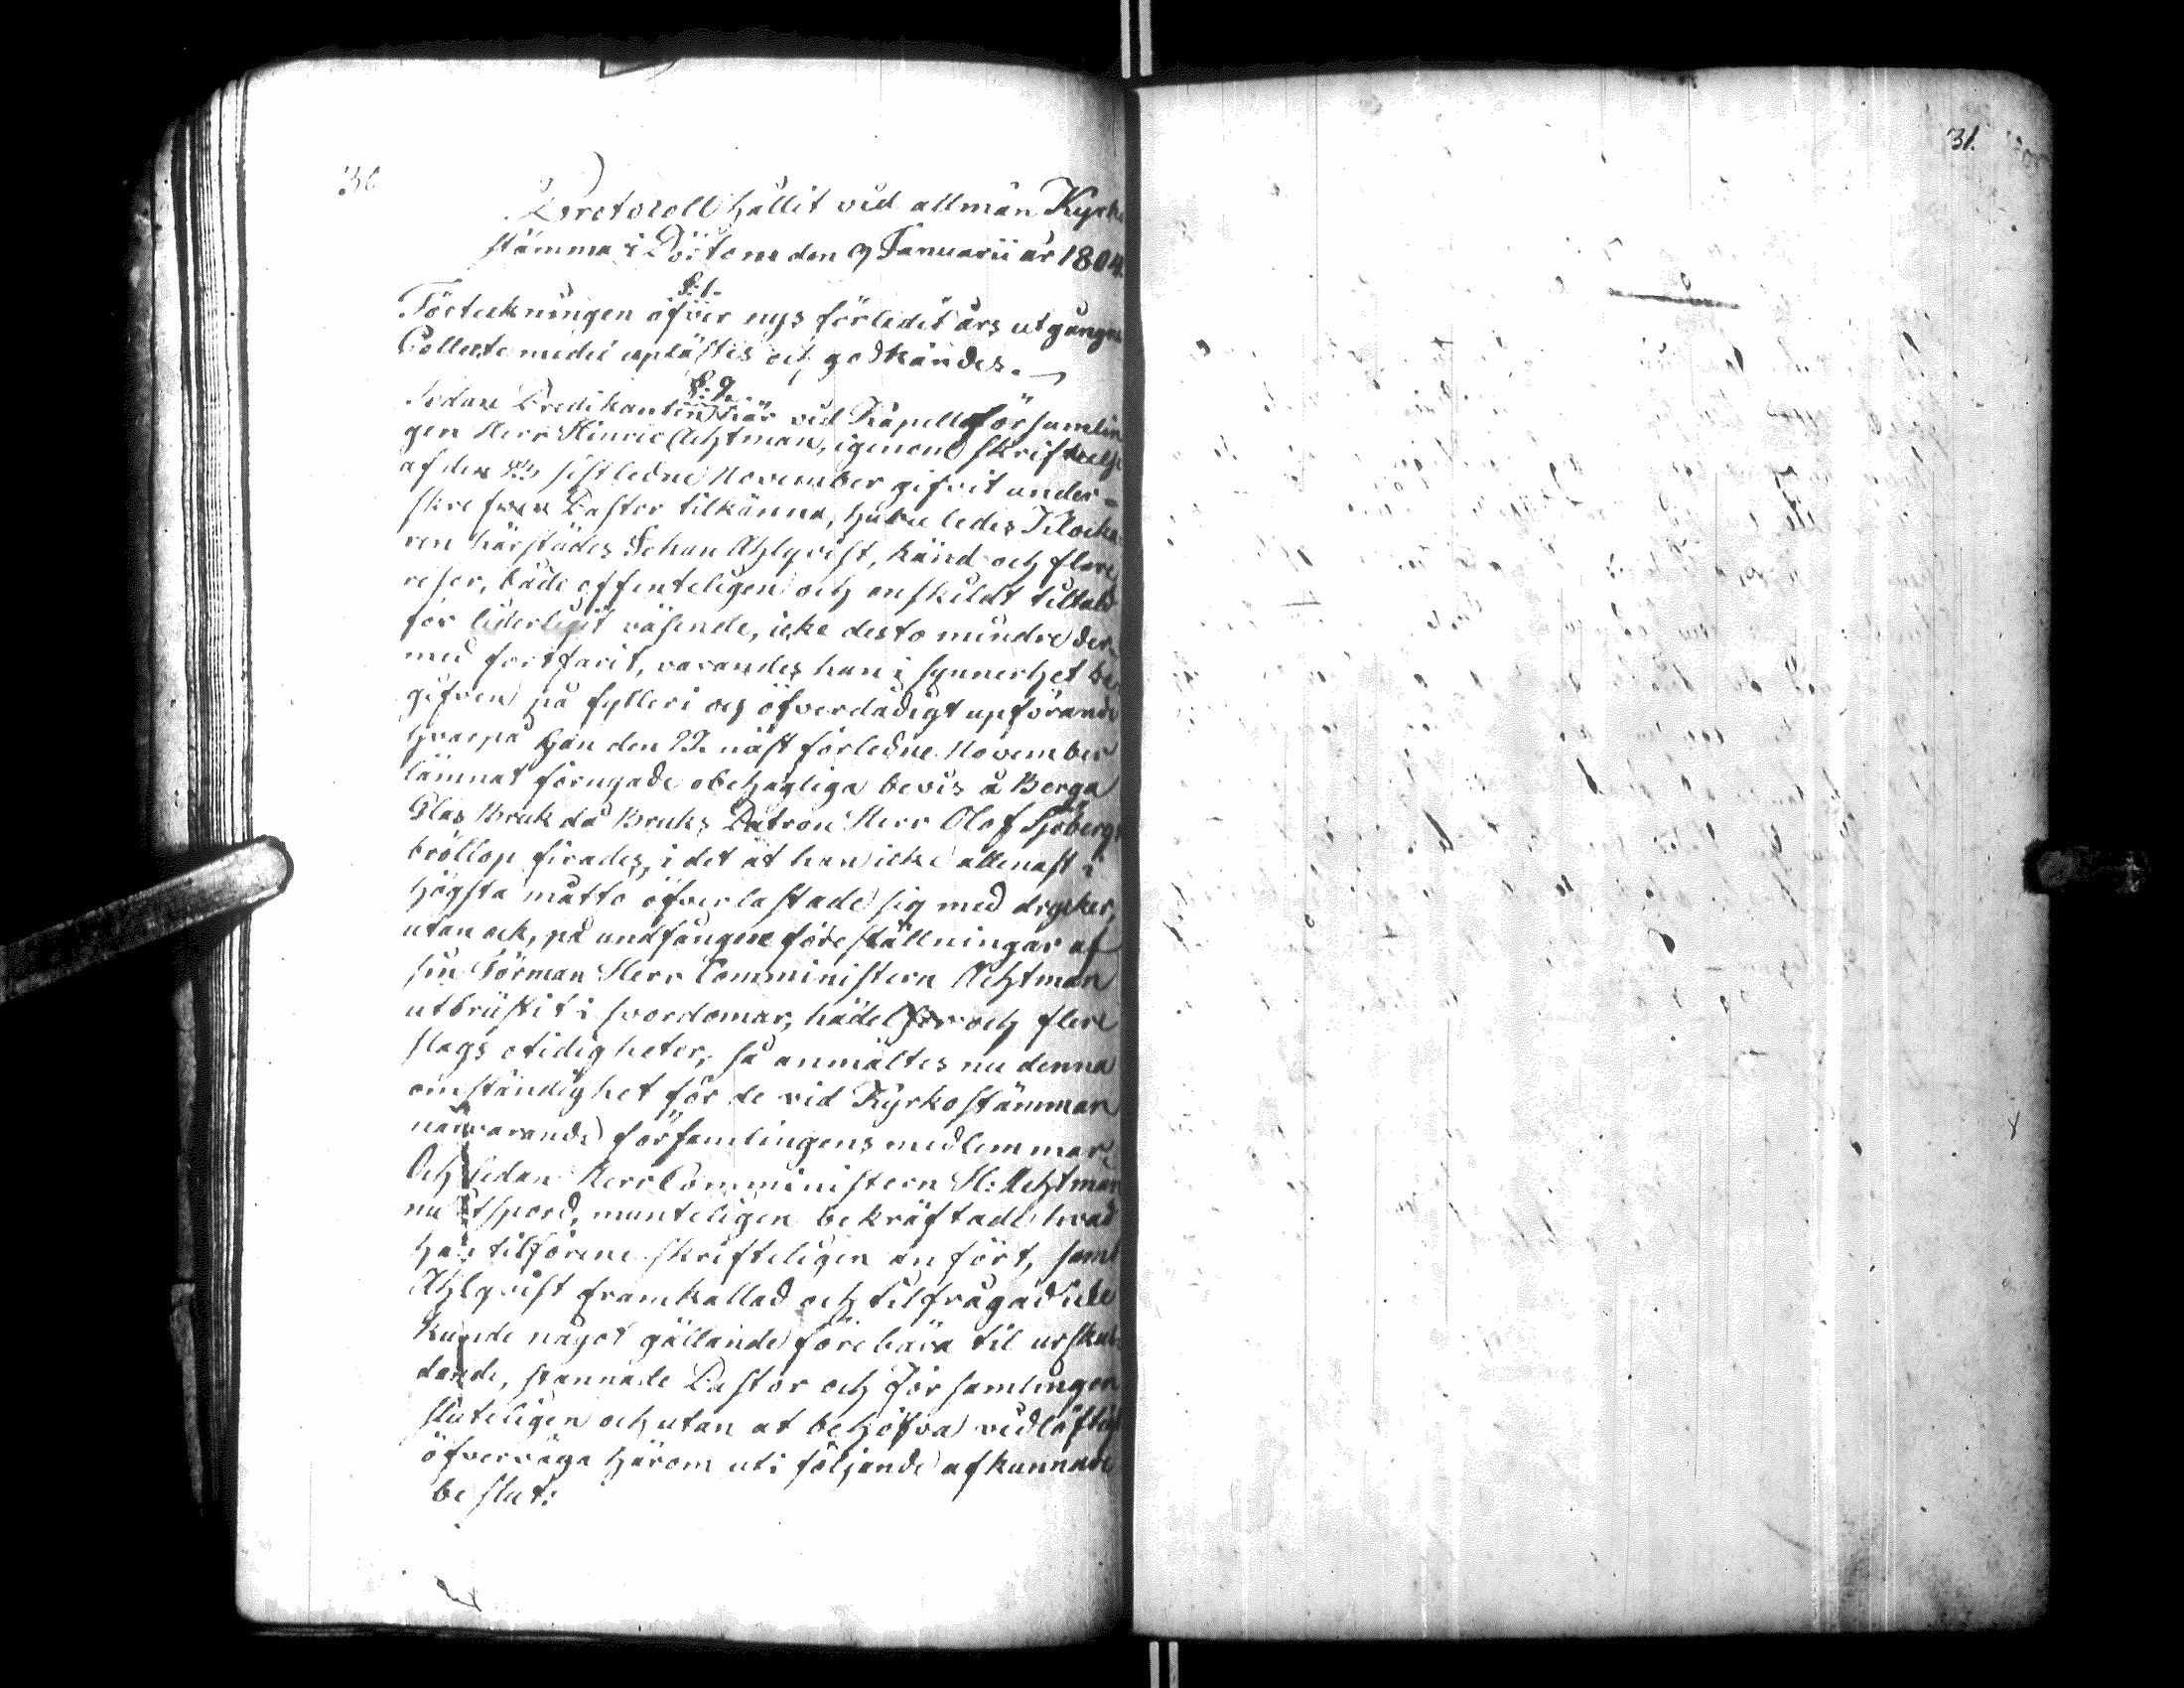 30
Protocoll hållit vid allmän Kyrko
stämma i Pöitone den 9 Januarii år 1804.
§. 1.
Förteckningen öfver nys förledit års utgångne
Collecte medel uplästes och godkändes.
§. 2.
Sedan Predikanten här vid Kapellsförsamlin
gen Herr Hinric Achtman, igenom skrifteelse
af den sistledne November gifvit under-
skrefven Pastor tilkänna, huruledes Klocka
ren härstädes Johan Ahlqvist, känd och flere
resor, både offenteligen och enskildt tiltald
för liderligit väsende, icke desto mindre der
med fortfarit, varandes han i synnerhet be
gifven på fylleri och öfverdådigt upförande
hvarpå han den 22 näst förledne November
lämnat förnyade obehagliga bevis å Berga
Glas Bruk då Bruks Patron Herr Olof Sjöbergs
bröllop firades, i det at han icke allenast i
högsta måtto öfverlastade sig med drycker,
utan ock, på undfångne föreställningar af
sin Förman Herr Comministern Achtman
utbrustit i svordomar, hädelser och flere
slags otidigheter, så anmältes nu denna
omständighet för de vid Kyrkostämman
närvarande församlingens medlemmar,
Och sedan Herr Comministern H: Achtman
nu utspord, munteligen bekräftade hvad
han tilförene skrifteligen anfört, samt
Ahlqvist framkallad och tilfrågad icke
kunde något gällande förebära til urskul
dande, stannade Pastor och Församlingen
sluteligen och utan at behöfva vidlöftigt
öfverväga härom uti följande afkunnade
beslut:
31.